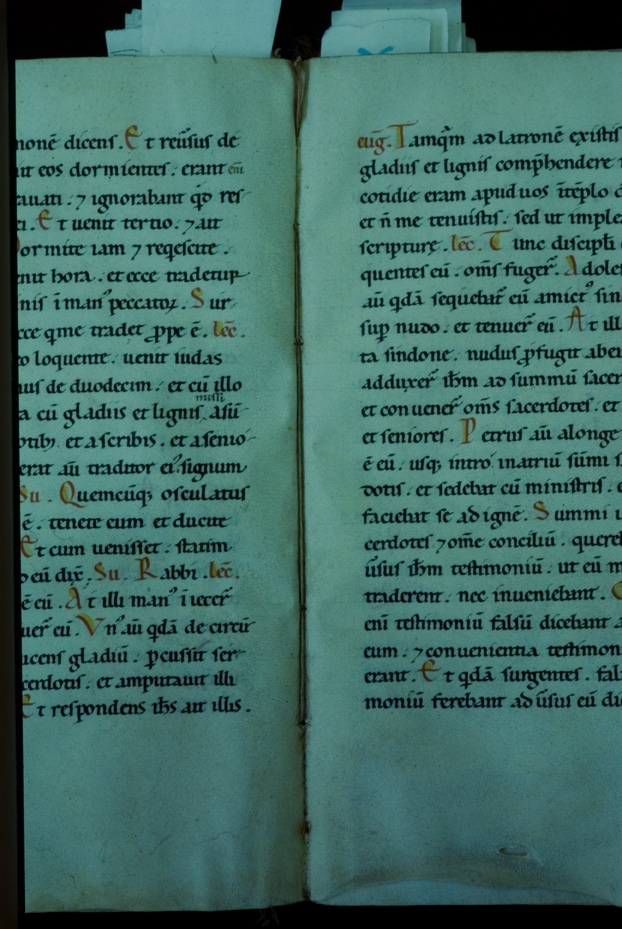 monē dicens. Et reu̅sus de
it eos dormientes. erant eni̅
auati. ⁊ ignorabant qd̅ res
ei. Et uenit tertio. ⁊ ait
Dormite iam ⁊ reqescite.
enit hora. et ecce tradetur
nis i̅ man᾿ peccatoꝝ. Sur
cce q me tradet ꝓpe ē. lēc.
o loquente. uenit iudas
us de duodecim. et cū illo
a cū gladiis et lignis missi asū
otibꝫ et a scribis. et a senio
erat aū traditor ei᾿ signum
Su. Quemcūqꝫ osculatus
ē. tenete eum et ducite
Et cum uenisset. statim
eū dix̅. Su. Rabbi. lēc.
ē eū. At illi man᾿ i̅iecer̅
uer̅ eū. Vn᾿ aū qdā de circū
ucens gladiū. ꝑcussit ser
cerdotis. et amputauit illi
Et respondens ihs̅ ait illis.
eug̅. Tamqm̅ ad latronē existis
gladiis et lignis comp̅hendere
cotidie eram apud uos i̅ tēplo
et n̅ me tenuistis. sed ut imple
scripturę. lēc. Tunc discipli̅
quentes eū. om̅s fuger̅. Adoles
aū qdā sequebat̅ eū amict᾿ sin
sup̅ nudo. et tenuer̅ eū. At ill
ta sindone. nudus ꝓfugit ab ei
adduxer̅ ihm̅ ad summū sacer
et conuener̅ om̅s sacerdotes. et
et seniores. Petrus aū a longe
ē eū. usqꝫ intro in atriū sūmi s
dotis. et sedebat cū ministris.
faciebat se ad ignē. Summi
cerdotes ⁊ om̅e conciliū. quereb
u̅sus ihm̅ testimoniū. ut eū m
traderent. nec inueniebant.
eni̅ testimoniū falsū dicebant
eum. ⁊ conuenientia testimon
erant. Et qdā surgentes. fal
moniū ferebant adu̅sus eū di